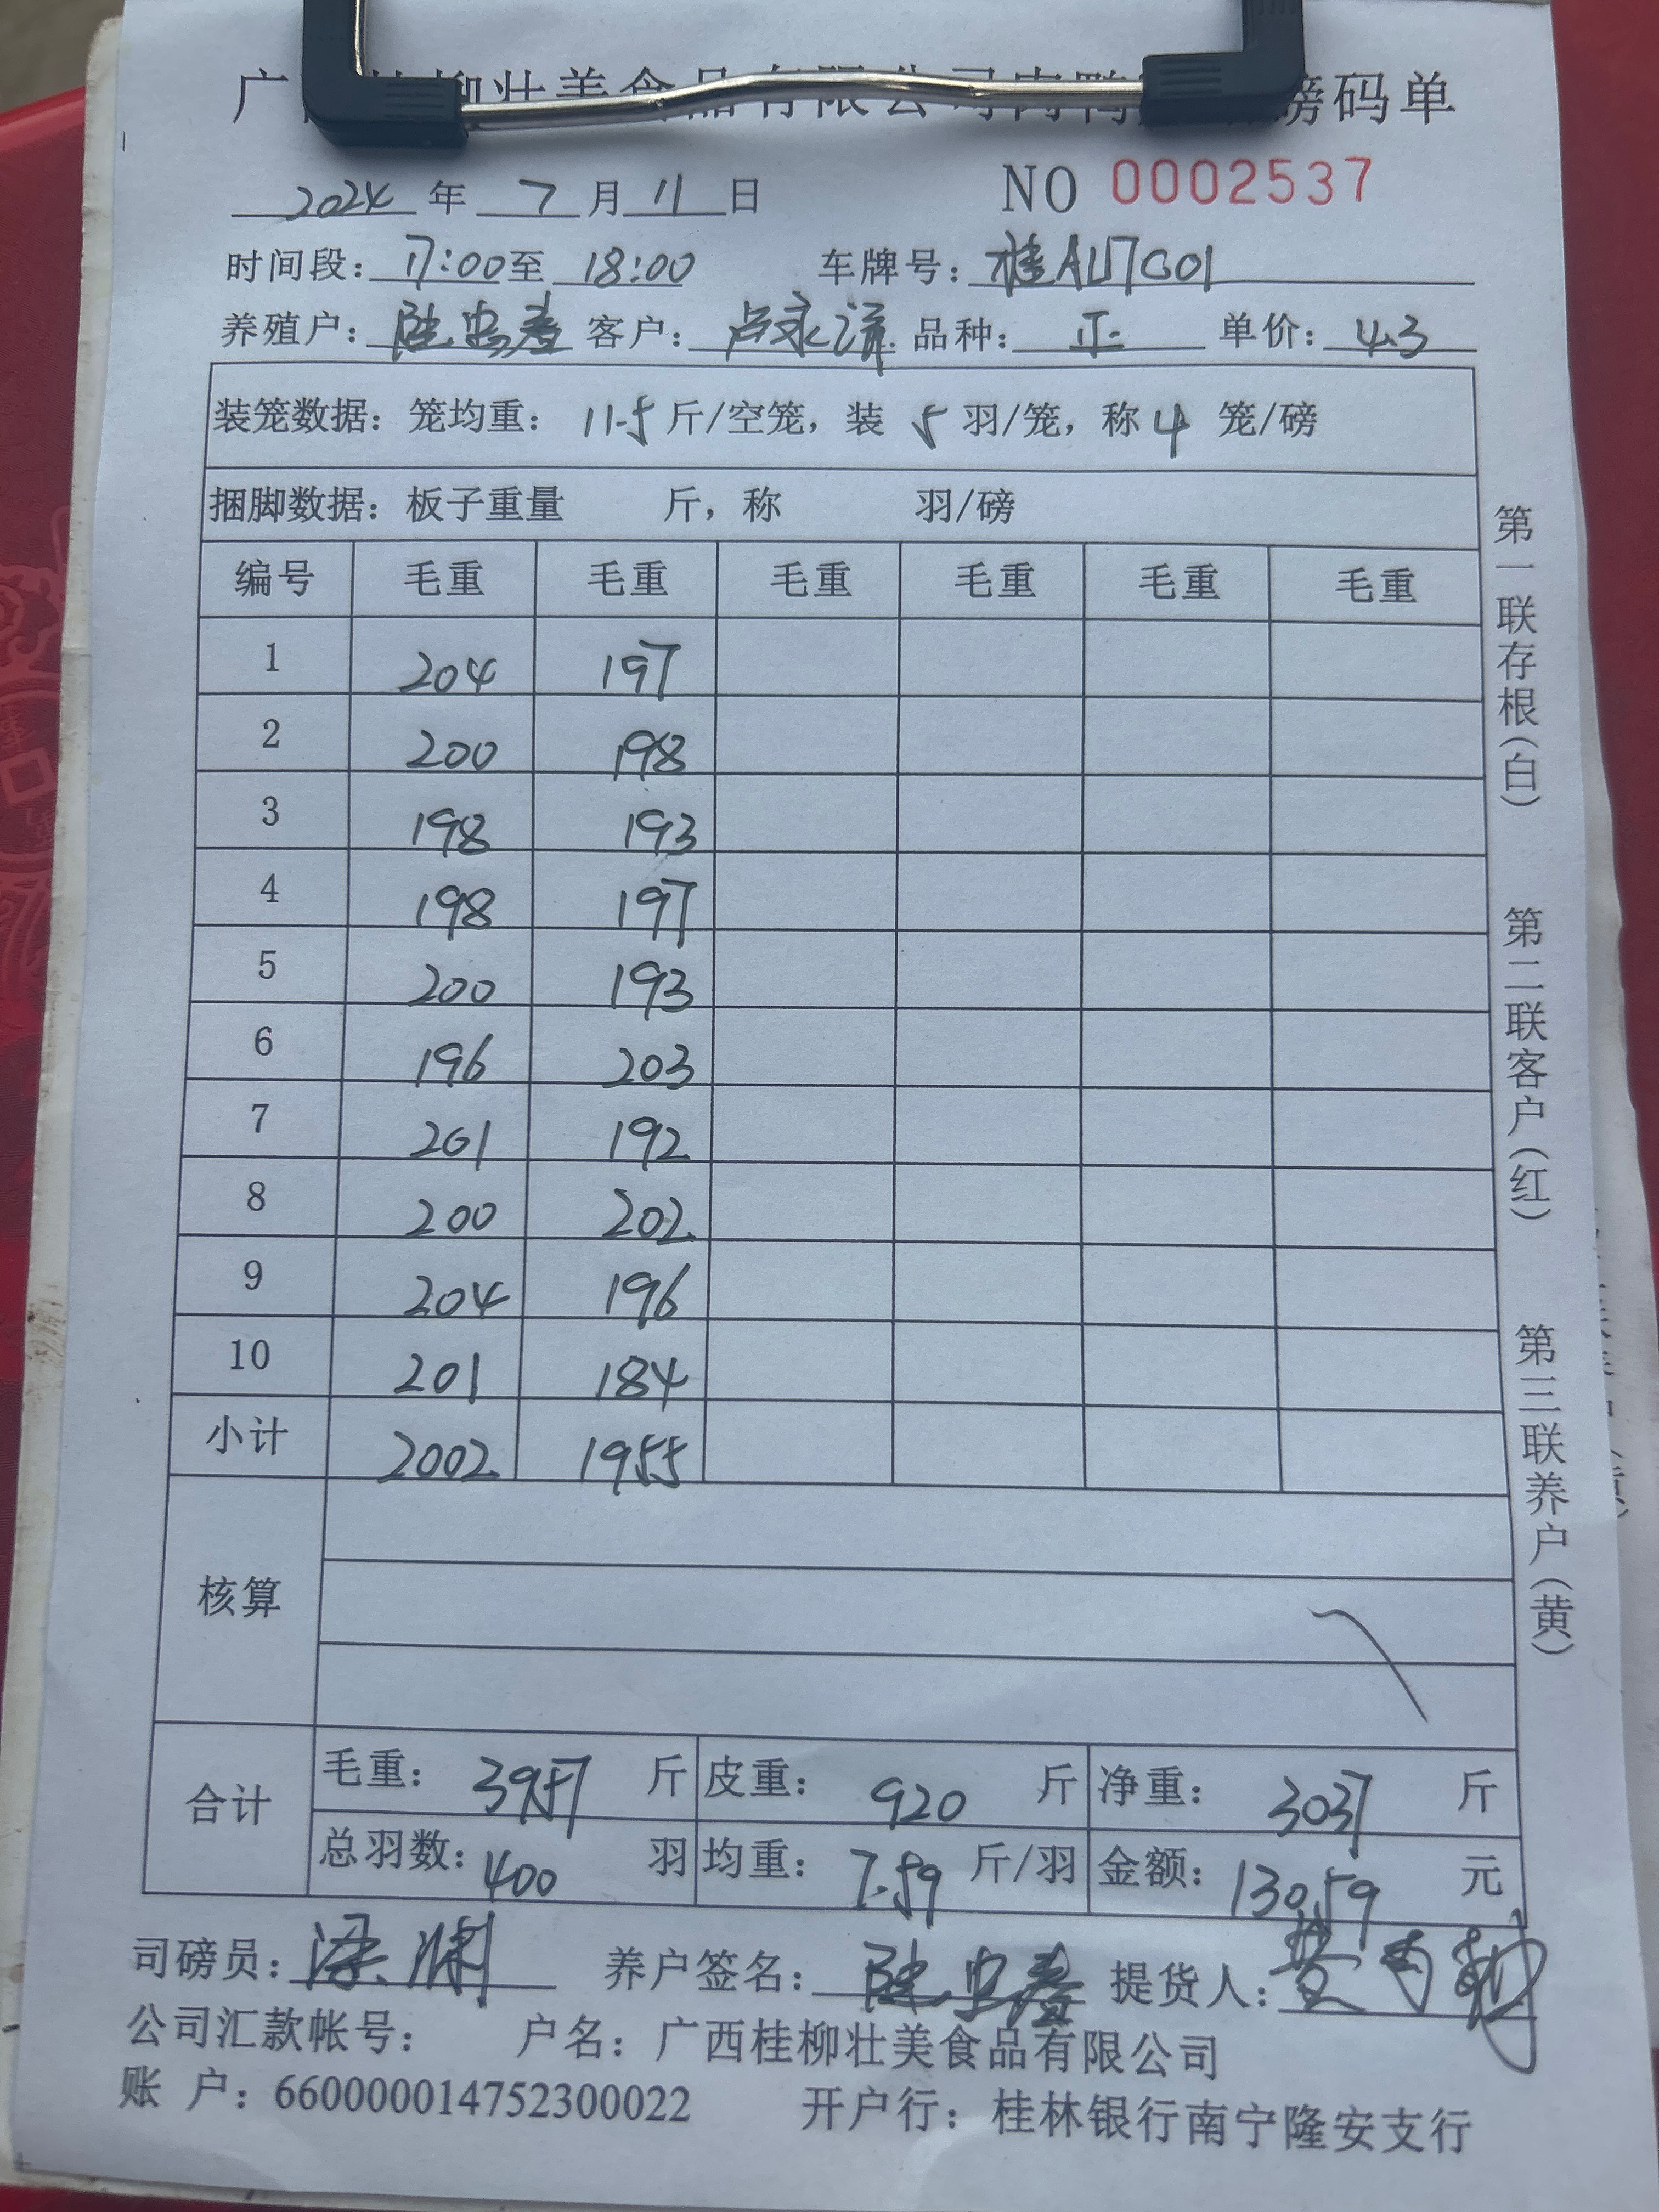 广西桂柳壮美食品有限公司肉鸭 磅码单
2024 年 7 月 11 日 NO 0002537
时间段: 17:00 至 18:00 车牌号: 桂AU7C01
养殖户: 陆忠春 客户: 卢永清 品种: 正 单价: 4.3
装笼数据: 笼均重: 11.5 斤/空笼, 装 5 羽/笼, 称 4 笼/磅
捆脚数据: 板子重量 斤, 称 羽/磅
编号 毛重 毛重 毛重 毛重 毛重 毛重
1 204 197
2 200 198
3 198 193
4 198 197
5 200 193
6 196 203
7 201 192
8 200 202
9 204 196
10 201 184
小计 2002 1955
核算
合计 毛重: 3957 斤 皮重: 920 斤 净重: 3037 斤
总羽数: 400 羽 均重: 7.59 斤/羽 金额: 13059 元
司磅员: 梁 养户签名: 陆忠春 提货人:
公司汇款帐号: 户名: 广西桂柳壮美食品有限公司
账 户: 660000014752300022 开户行: 桂林银行南宁隆安支行
第一联存根(白) 第二联客户(红) 第三联养户(黄)